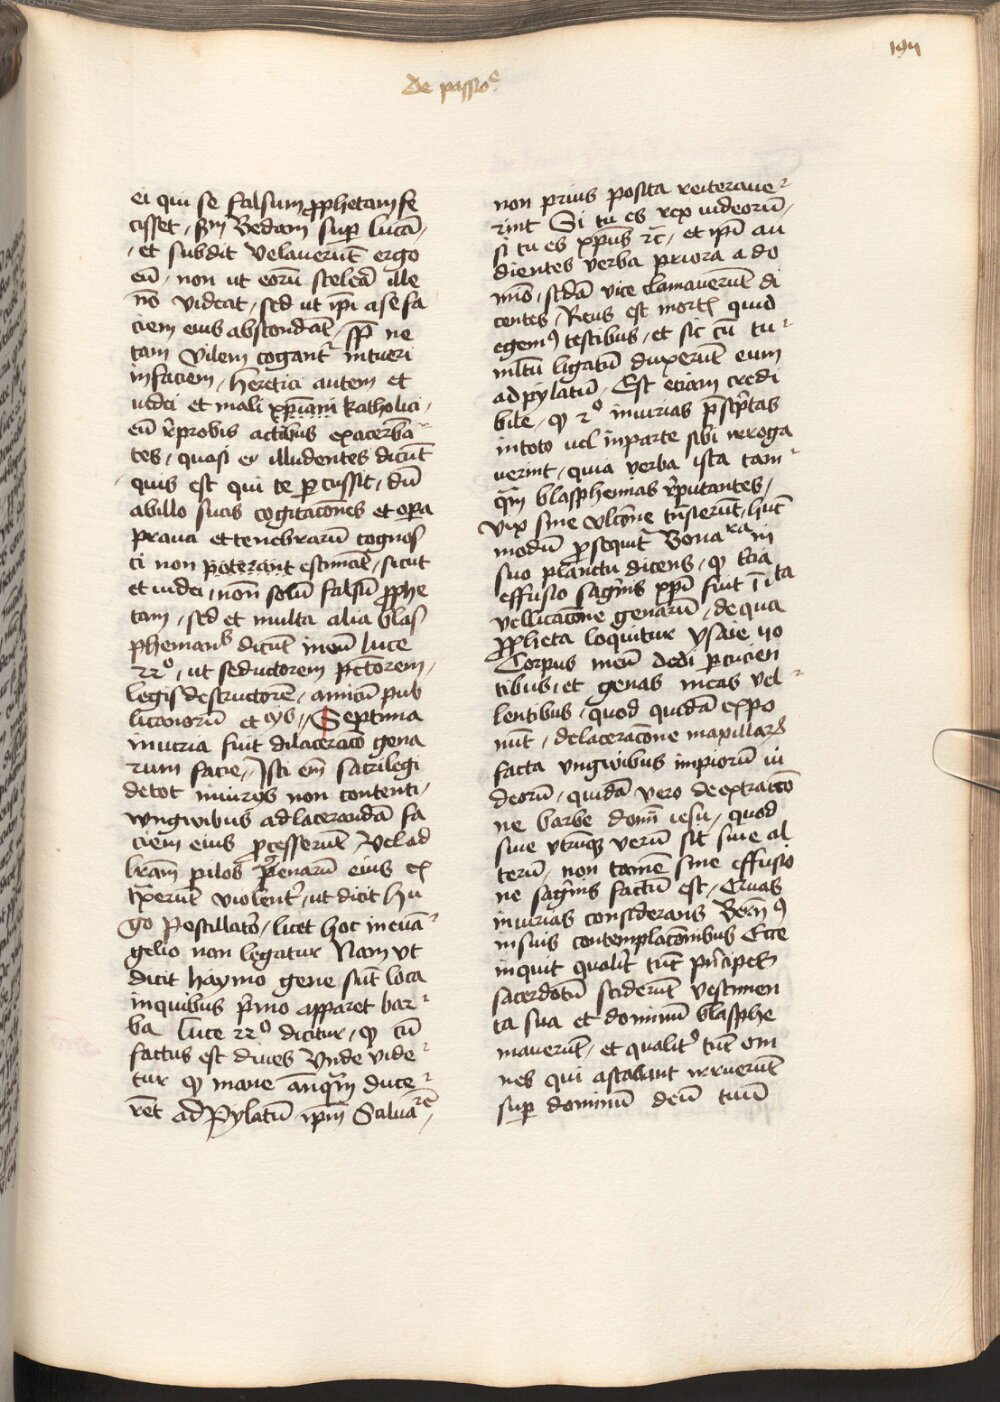 De passioe
ei qui se falsum ꝓphetam fe
cisset, scdm Bedam sup lucā,
et subdit velaverūt ergo
eū, non ut eorū scelera ille
nō videat, sed ut ipi a se fa
ciem eius abscondāt, ne
tam vilem cogant intueri
in faciem, heretici autem et
iudei et mali xp̄iani katholici,
eū reprobis actibus exacerbā
tes, quasi ei illudentes dicūt
quis est qui te percussit, dū
ab illo suas cogitacones et opera
praua et tenebrarū cognos
ci non poterant estimāt, sicut
et iudei, non solū falsū ꝓphe
tam, sed et multa alia blas
phemantes dicūt in eū luce
22º, ut seductorem
legis destructorē, amicū pub
licanorū et Septima
iniuria fuit dilaceracō gena
rum facie, Isti em̄ sacrilegi
de tot iniurijs non contenti,
ungwibus ad lacerandā fa
ciem eius ꝓcesserūt, Vel ad
pilos genarū eius ex
violent, ut dicit hu
go Postillator, licet hoc in euā
gelio non legatur Nam ut
dicit haymo gene sūt loca
in quibus primo apparet bar
ba luce 22º dicitur, ꝙ cū
factus est dies Vnde vide
tur ꝙ mane anq̄m duce
rēt ad Pylatū ipm Saluatorē,
non prius posita reiteraue
rint Si tu es rex iudeorū,
si tu es xp̄us ꝛc̄, et ipi au
dientes verba priora a do
mino, scdā vice clamauerūt di
centes, Reus est mortis quid
egemꝰ testibus, et sic cū tu
multu ligatū duxerūt eum
ad pylatū, Est eciam credi
bile, ꝙ 2º iniurias
in toto uel in parte sibi irroga
uerint, quia verba ista tam
q̄m blasphemias reputantes,
vix sine ulcōne trāsierūt, hūc
modū ꝓsequit Bonauentura in
suo planctu dicens, ꝙ tcia
effusio sagwinis xpi fuit ī ita
vellicacōne genarū, de qua
ꝓpheta loquitur ysaie 50
Corpus meū dedi percucien
tibus, et genas meas vel
lentibus, quod quidā expo
nūt, de laceracōne maxillarū
facta ungwibus impiorū iu
deorū, quidā vero de extractō
ne barbe domī iesu, quod
siue utrūq verū sit siue al
terū, non tamē sine effusio
ne sagwinis factū est, Quas
iniurias considerans Bernꝰ
in suis contemplacōnibus Ecce
inquit qualit tūc principes
sacerdotū sciderūt vestimen
ta sua et dominū blasphe
mauerūt, et qualit tūc om
nes qui astabant irruerūt
sup dominū deū tuū